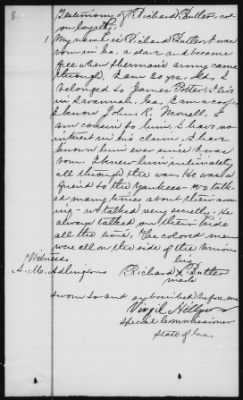 Testimony of Richard Butler, col
on loyalty
1 My name is Richard Butler I was
born in Ga. a slave and became
free when Sherman's army came
through. I am 20 yrs. old. I
belonged to James Potter. I live
in Savannah, Ga. I am a
I know John R. Monell. I
am cousin to him. I have no
interest in his claim. I have
known him ever since I was
born. I knew him intimately
all through the war. He was a
friend to the Yankees - we talk
ed many times about their com
ing - we talked very secretly. He
always talked on their side
all the time. The colored men
were all on the side of the Union
Witness his
A. M. Adlington Richard X Butler
mark
sworn to and subscribed before me
Virgil Hillyer
special Commissioner
State of Ga.